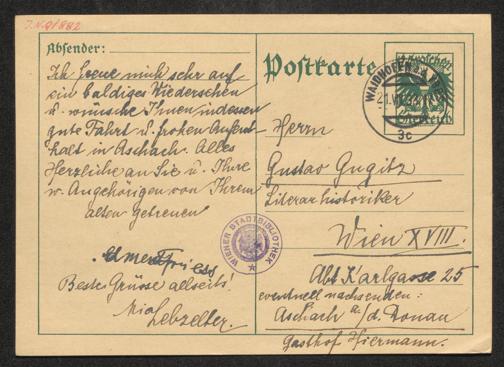 J.N. 91882
Absender:
Ich freue mich sehr auf
ein baldiges Wiedersehen
u. wünsche Ihnen indessen
gute Fahrt u. frohen Aufent-
halt in Aschach. Alles
Herzliche an Sie u. Ihre
w. Angehörigen von Ihrem
alten getreuen
Elmer Friess
Beste Grüsse allseits!
Mia
Lebzelter.
WIENER STADTBIBLIOTHEK
Postkarte
Groschen
WAIDHOFEN
3c
Herrn
Gustav Gugitz
Literarhistoriker
Wien XVIII.
Abt Karlgasse 25
eventuell nachsenden:
Aschach a./d. Donau
Gasthof Hiermann.